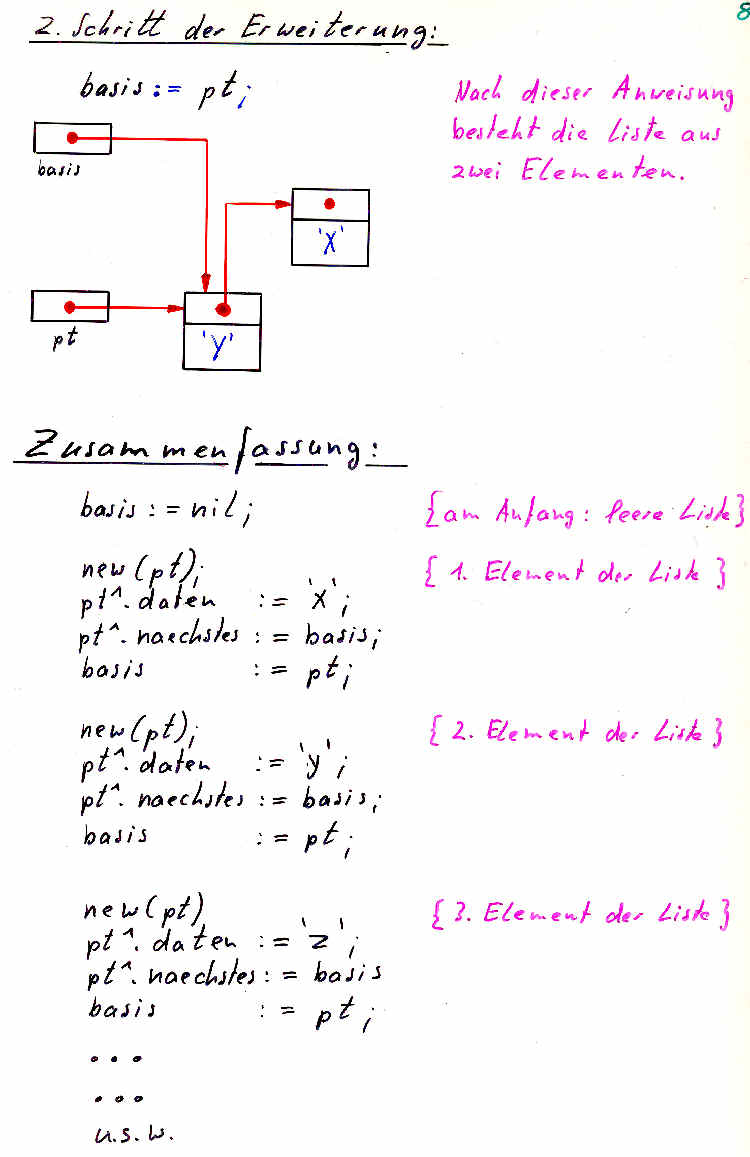 8
2. Schritt der Erweiterung:
basis := pt;
Nach dieser Anweisung
besteht die Liste aus
zwei Elementen.
basis
'X'
pt
'Y'
Zusammenfassung:
basis := nil; {am Anfang: leere Liste}
new(pt); { 1. Element der Liste }
pt^.daten := 'X';
pt^.naechstes := basis;
basis := pt;
new(pt); { 2. Element der Liste }
pt^.daten := 'y';
pt^.naechstes := basis;
basis := pt;
new(pt) { 3. Element der Liste }
pt^.daten := 'z';
pt^.naechstes := basis
basis := pt;
...
...
u.s.w.